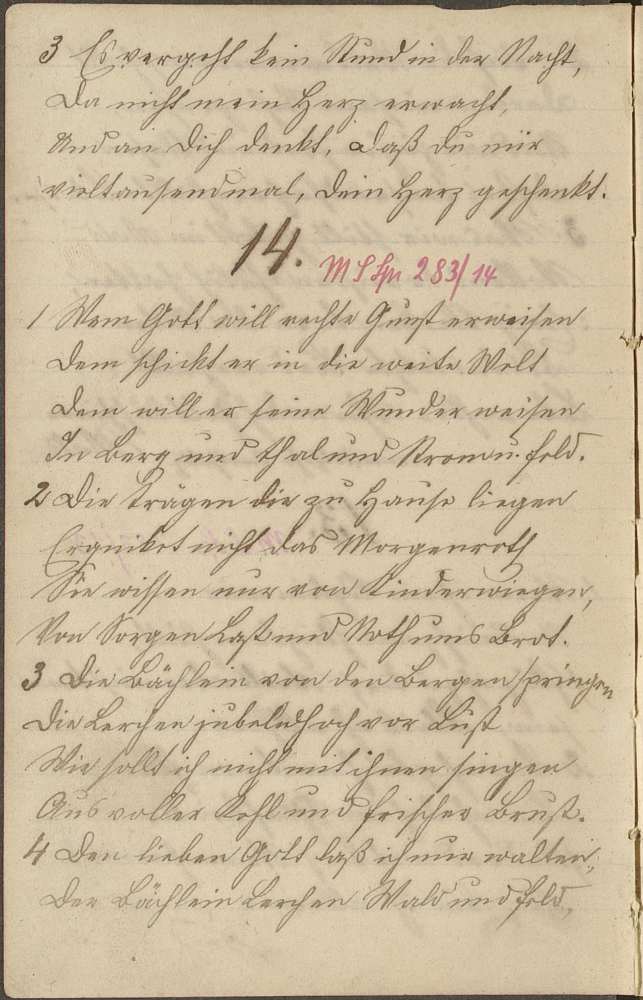 3 Es vergeht kein Stund in der Nacht,
Da nicht mein Herz erwacht,
Und an dich denkt, daß du mir
vieltausendmal, dein Herz geschenkt.
14.
1 Wem Gott will rechte Gunst erweisen
Dem schickt er in die weite Welt
Dem will er seine Wunder weisen
In Berg und thal und Strom u. feld.
2 Die trägen die zu Hause liegen
Erquiket nicht das Morgenroth
Sie wissen nur von Kinderwiegen,
Von Sorgen Last und Noth ums Brot.
3 Die Bächlein von den Bergen springen
Die Lerchen jubeln hoch vor Lust
Wie sollt ich nicht mit ihnen singen
Aus voller Kehl und frischer Brust.
4 Den lieben Gott laß ich nur walten,
Der Bächlein Lerchen Wald und feld,